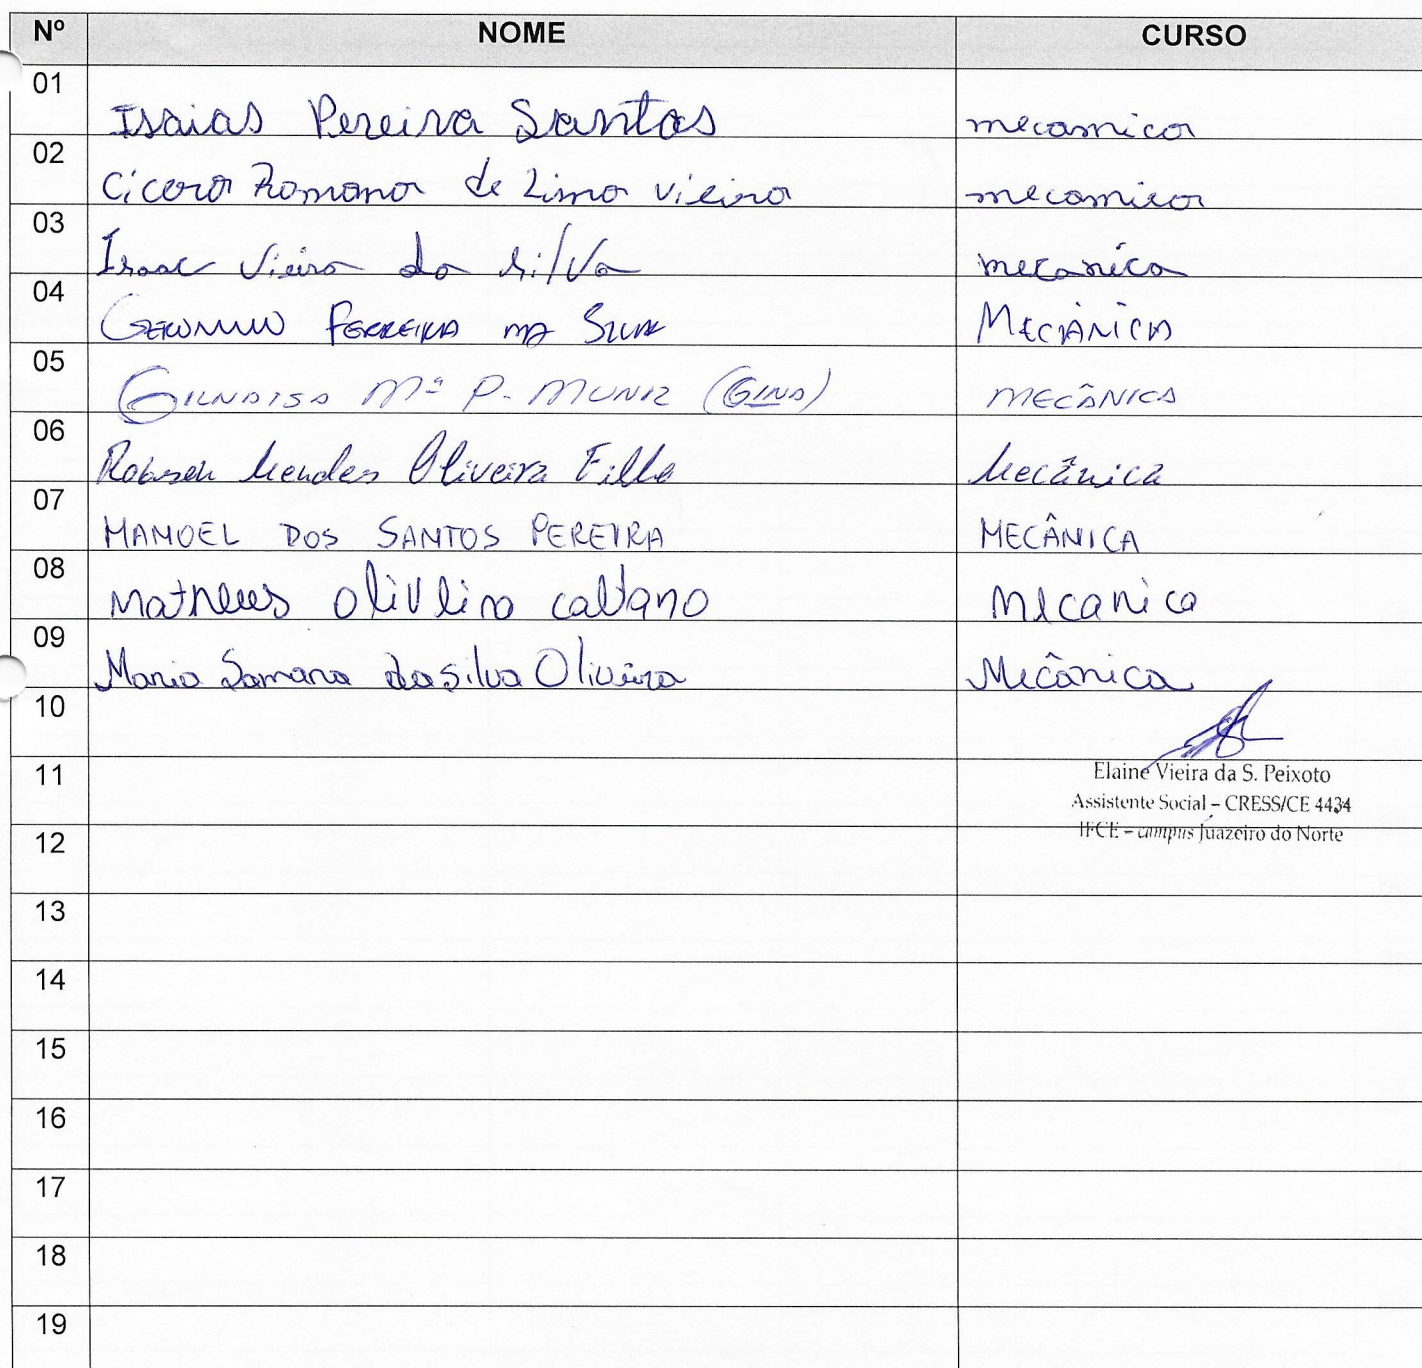 Nº NOME CURSO
01 Isaias Pereira Santos mecanica
02 Cicera Romana de Lima Vieira mecanica
03 Isaac Vieira da Silva mecanica
04 FERREIRA DA SILVA MECÂNICA
05 GILNDISA Mª P. MUNIZ (GINA) MECÂNICA
06 Robson Mendes Oliveira Filho Mecânica
07 MANOEL DOS SANTOS PEREIRA MECÂNICA
08 Matheus Oliveira caetano Mecanica
09 Maria Samara da silva Oliveira Mecânica
10
11 Elaine Vieira da S. Peixoto
Assistente Social – CRESS/CE 4434
12 IFCE – campus Juazeiro do Norte
13
14
15
16
17
18
19